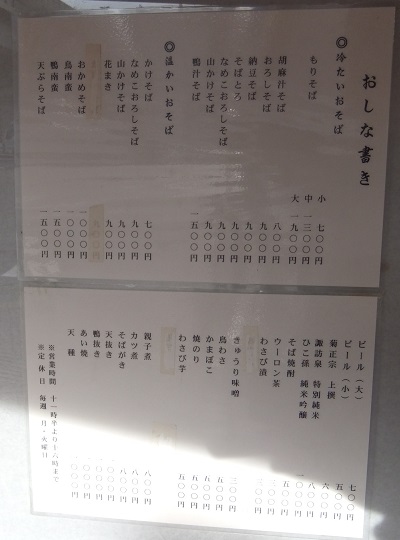 おしな書き
◎冷たいおそば
もりそば
小 七〇〇円
中 一三〇〇円
大 一九〇〇円
胡麻汁そば 八〇〇円
おろしそば 九〇〇円
納豆そば 九〇〇円
そばとろ 九〇〇円
なめこおろしそば 九〇〇円
山かけそば 九〇〇円
鴨汁そば 一五〇〇円
◎温かいおそば
かけそば 七〇〇円
なめこおろしそば 九〇〇円
山かけそば 九〇〇円
花まき 九〇〇円
おかめそば 一〇〇〇円
鳥南蛮 一〇〇〇円
鴨南蛮 一五〇〇円
天ぷらそば 一五〇〇円
ビール（大） 七〇〇円
ビール（小） 五〇〇円
菊正宗 上撰
諏訪泉 特別純米
ひこ孫 純米吟醸
そば焼酎
ウーロン茶
わさび漬
きゅうり味噌 三〇〇円
鳥わさ
かまぼこ 五〇〇円
焼のり
わさび芋 五〇〇円
親子煮 八〇〇円
カツ煮 八〇〇円
そばがき
天抜き
鴨抜き
あい焼
天種
※営業時間 十一時半より六時まで
※定休日 毎週 月・火曜日